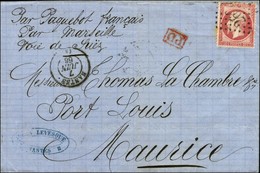 Par Paquebot Français
Par Marseille
Voie de Suez
PD
Messieurs Thomas La Chambre &
Port Louis
Maurice
LEVESQUE
NANTES